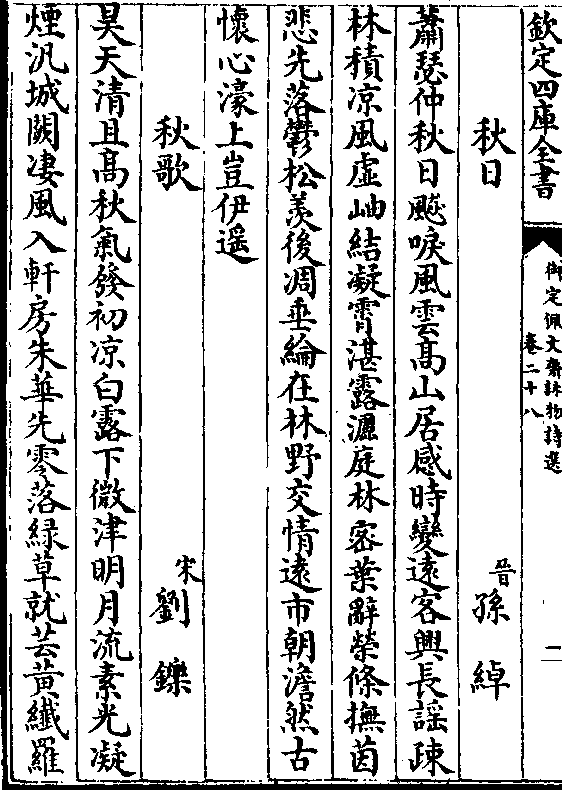 欽定四庫全書
御定佩文齋詠物詩選
卷二十八
二
秋日
晉孫綽
蕭瑟仲秋日飈唳風雲髙山居感時變遠客興長謡疎
林積凉風虛岫結凝霄湛露灑庭林宻葉辭榮條撫茵
悲先落鬱松羡後凋垂綸在林野交情逺市朝澹然古
懷心濠上豈伊遥
秋歌
宋劉鑠
昊天清且髙秋氣發初凉白露下微津明月流素光凝
煙汎城闕凄風入軒房朱華先零落緑草就芸黄纎羅